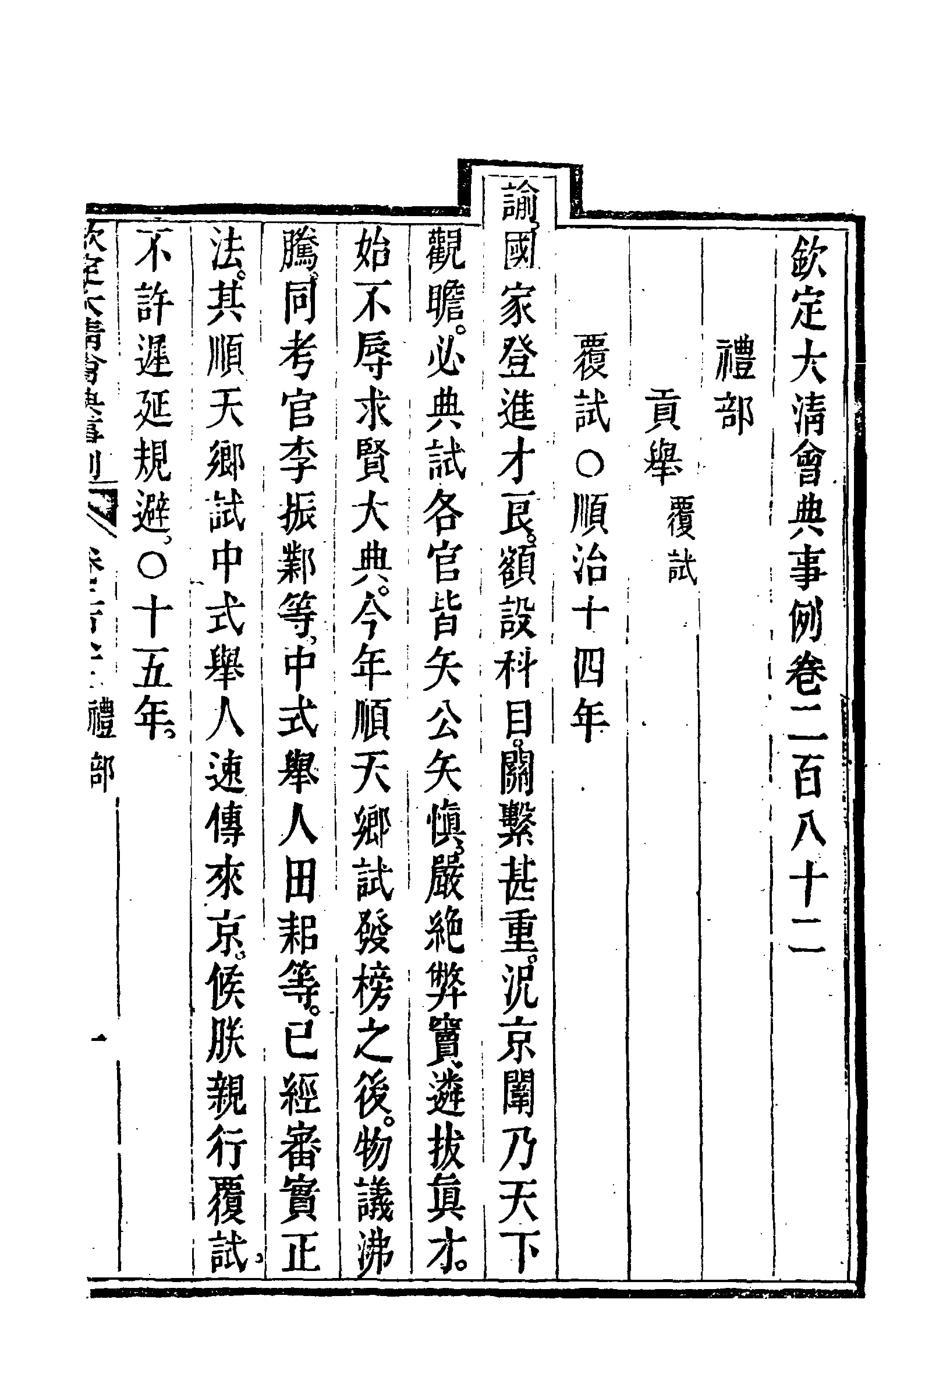 欽定大淸會典事例卷二百八十二
禮部
貢舉 覆試
覆試○順治十四年
諭國家登進才良。額設科目。關繫甚重。況京闈乃天下
觀瞻。必典試各官皆矢公矢愼、嚴絶弊竇、遴拔眞才。
始不辱求賢大典。今年順天鄉試發榜之後。物議沸
騰。同考官李振鄴等、中式舉人田耜等。已經審實正
法。其順天鄉試中式舉人速傳來京、候朕親行覆試、
不許遲延規避。○十五年。
欽定大淸會典事例
禮部
一